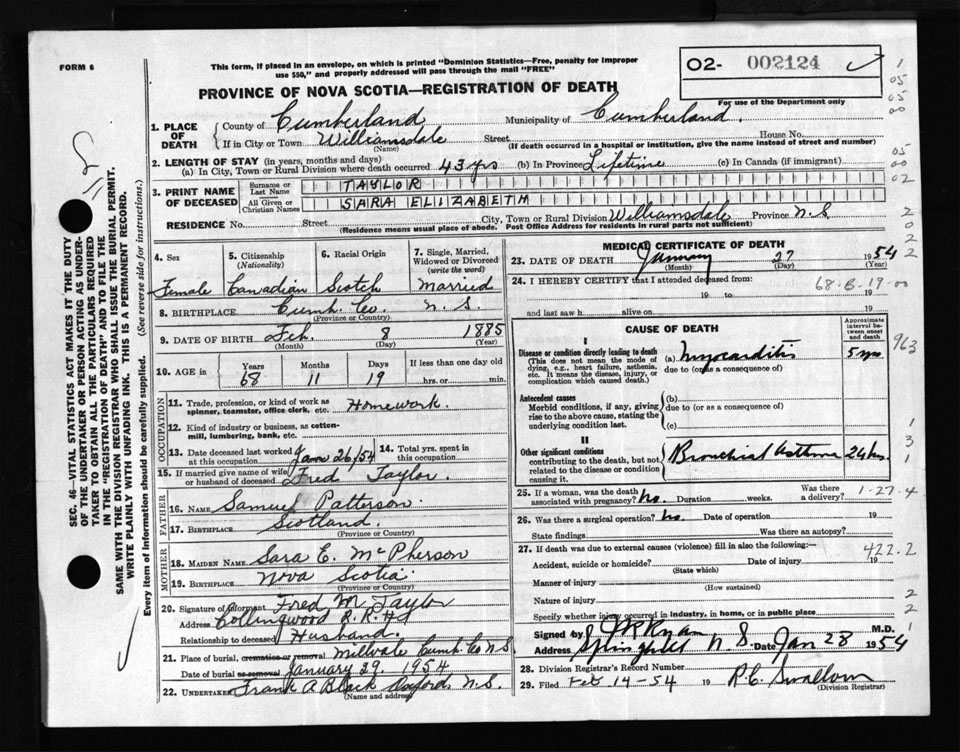 FORM 6
This form, if placed in an envelope, on which is printed "Dominion Statistics—Free, penalty for improper
use $50," and properly addressed will pass through the mail "FREE"
02- 002124
PROVINCE OF NOVA SCOTIA—REGISTRATION OF DEATH
For use of the Department only
1. PLACE OF DEATH
County of Cumberland Municipality of Cumberland.
If in City or Town Williamsdale Street House No.
(Name) (If death occurred in a hospital or institution, give the name instead of street and number)
2. LENGTH OF STAY (in years, months and days)
(a) In City, Town or Rural Division where death occurred 43 yrs (b) In Province Lifetime (c) In Canada (if immigrant)
3. PRINT NAME OF DECEASED
Surname or Last Name TAYLOR
All Given or Christian Names SARA ELIZABETH
RESIDENCE No. Street City, Town or Rural Division Williamsdale Province N.S.
(Residence means usual place of abode. Post Office Address for residents in rural parts not sufficient)
4. Sex 5. Citizenship (Nationality) 6. Racial Origin 7. Single, Married, Widowed or Divorced (write the word)
Female Canadian Scotch Married
8. BIRTHPLACE Cumb. Co. N.S.
(Province or Country)
9. DATE OF BIRTH Feb. 8 1885
(Month) (Day) (Year)
10. AGE in Years Months Days If less than one day old
68 11 19 hrs. or min.
OCCUPATION
11. Trade, profession, or kind of work as spinner, teamster, office clerk, etc. Homework.
12. Kind of industry or business, as cotton-mill, lumbering, bank, etc.
13. Date deceased last worked at this occupation Jan 26/54 14. Total yrs. spent in this occupation
15. If married give name of wife or husband of deceased Fred Taylor.
FATHER
16. NAME Samuel Patterson
17. BIRTHPLACE Scotland.
(Province or Country)
MOTHER
18. MAIDEN NAME Sara E. McPherson
19. BIRTHPLACE Nova Scotia
(Province or Country)
20. Signature of informant Fred M Taylor
Address Collingwood R.R.#1
Relationship to deceased Husband.
21. Place of burial, cremation or removal Millvale Cumb. Co N.S.
Date of burial or removal January 29, 1954
22. UNDERTAKER Frank A Black Oxford, N.S.
(Name and address)
MEDICAL CERTIFICATE OF DEATH
23. DATE OF DEATH January 27 1954
(Month) (Day) (Year)
24. I HEREBY CERTIFY that I attended deceased from:
68-B-19-00
19 to 19
and last saw h alive on 19
CAUSE OF DEATH
Approximate interval between onset and death
I
Disease or condition directly leading to death
(This does not mean the mode of dying, e.g., heart failure, asthenia, etc. It means the disease, injury, or complication which caused death.)
(a) Myocarditis 5 yrs
due to (or as a consequence of)
Antecedent causes
Morbid conditions, if any, giving rise to the above cause, stating the underlying condition last.
(b)
due to (or as a consequence of)
(c)
II
Other significant conditions
contributing to the death, but not related to the disease or condition causing it.
Bronchial Asthma 24 hrs.
25. If a woman, was the death associated with pregnancy? no. Duration weeks. Was there a delivery? 1-27-4
26. Was there a surgical operation? no. Date of operation 19
State findings Was there an autopsy?
27. If death was due to external causes (violence) fill in also the following:—
422.2
Accident, suicide or homicide? Date of injury 19
(State which)
Manner of injury
(How sustained)
Nature of injury
Specify whether injury occurred in industry, in home, or in public place
Signed by J R Ryan M.D.
Address Springhill N S. Date Jan 28 1954
28. Division Registrar's Record Number
29. Filed Feb 14-54 19
(Division Registrar)
SEC. 46—VITAL STATISTICS ACT MAKES IT THE DUTY
OF THE UNDERTAKER OR PERSON ACTING AS UNDER-
TAKER TO OBTAIN ALL THE PARTICULARS REQUIRED
IN THE "REGISTRATION OF DEATH" AND TO FILE THE
SAME WITH THE DIVISION REGISTRAR WHO SHALL ISSUE THE BURIAL PERMIT.
WRITE PLAINLY WITH UNFADING INK. THIS IS A PERMANENT RECORD.
Every item of information should be carefully supplied. (See reverse side for instructions.)
1
05
05
00
05
00
02
2
0
2
2
963
1
3
1
2
2
1